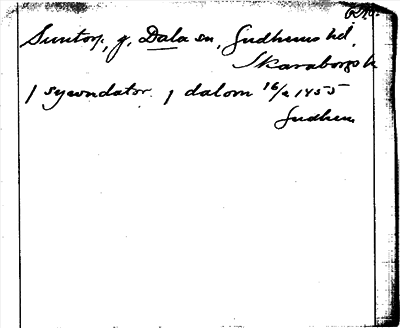 Suntorp, g, Dala sn, Gudhems hd,
Skaraborgs l.
/ sywndator. / dalom 16/2 1455
Gudhem